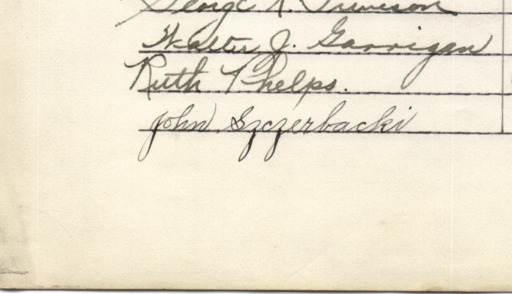 George R.
Walter J. Garrigan
Ruth Phelps.
John Szczerbacki